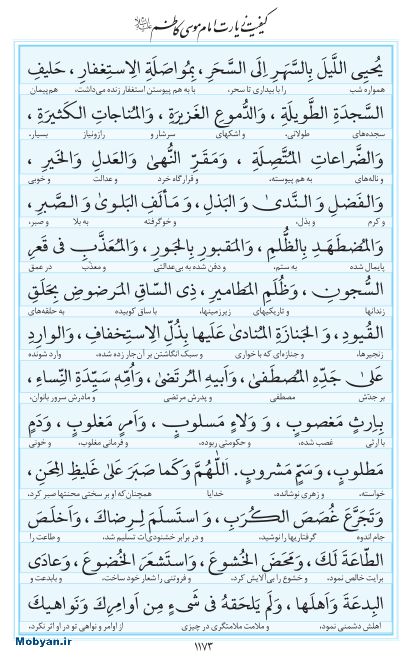 کیفیت زیارت امام موسی کاظم
یُحیِی اللَّیلَ بِالسَّهَرِ اِلَی السَّحَرِ، بِمُواصَلَةِ الاِستِغفارِ، حَلیفِ
همواره شب را با بیداری تا سحر، با به هم پیوستن استغفار زنده می‌داشت، هم‌پیمان
السَّجدَةِ الطَّویلَةِ، وَالدُّموعِ الغَزیرَةِ، وَالمُناجاتِ الکَثیرَةِ،
سجده‌های طولانی، و اشکهای سرشار و رازونیاز بسیار،
وَالضَّراعاتِ المُتَّصِلَةِ، وَمَقَرِّ النُّهیٰ وَالعَدلِ وَالخَیرِ،
و ناله‌های به هم پیوسته، و قرارگاه خرد و عدالت و خوبی
وَالفَضلِ وَالنَّدیٰ وَالبَذلِ، وَمَألَفِ البَلویٰ وَالصَّبرِ،
و کرم و بذل، و خوگرفته به بلا و صبر،
وَالمُضطَهَدِ بِالظُّلمِ، وَالمَقبورِ بِالجَورِ، وَالمُعَذَّبِ فی قَعرِ
پایمال شده به ستم، و دفن شده به بی‌عدالتی و معذب در عمق
السُّجونِ، وَظُلَمِ المَطامیرِ، ذِی السّاقِ المَرضوضِ بِحَلَقِ
زندانها و تاریکیهای زیرزمینها، با ساق کوبیده به حلقه‌های
القُیودِ، وَالجَنازَةِ المُنادیٰ عَلَیها بِذُلِّ الاِستِخفافِ، وَالوارِدِ
زنجیرها، و جنازه‌ای که با خواری و سبک انگاشتن بر آن جار زده شده، وارد شونده
عَلیٰ جَدِّهِ المُصطَفیٰ، وَاَبیهِ المُرتَضیٰ، وَاُمِّهِ سَیِّدَةِ النِّساءِ،
بر جدّش مصطفی و پدرش مرتضی و مادرش سرور بانوان،
بِاِرثٍ مَغصوبٍ، وَوَلاءٍ مَسلوبٍ، وَاَمرٍ مَغلوبٍ، وَدَمٍ
با ارثی غصب شده، و حکومتی ربوده، و فرمانی مغلوب، و خونی
مَطلوبٍ، وَسَمٍّ مَشروبٍ. اَللّٰهُمَّ وَکَما صَبَرَ عَلیٰ غَلیظِ المِحَنِ،
خواسته، و زهری نوشانده، خدایا همچنان‌که او بر سختی محنتها صبر کرد،
وَتَجَرَّعَ غُصَصَ الکُرَبِ، وَاستَسلَمَ لِرِضاکَ، وَاَخلَصَ
جام اندوه گرفتاریها را نوشید، و در برابر خشنودی‌ات تسلیم شد، و طاعت را
الطّاعَةَ لَکَ، وَمَحَضَ الخُشوعَ، وَاستَشعَرَ الخُضوعَ، وَعادَی
برایت خالص نمود، و خشوع را بی‌آلایش کرد، و فروتنی را شعار خود ساخت، و بابدعت و
البِدعَةَ وَاَهلَها، وَلَم یَلحَقهُ فی شَیءٍ مِن اَوامِرِکَ وَنَواهیکَ
اهلش دشمنی نمود، و ملامت ملامتگری در چیزی از اوامر و نواهی تو در او اثر نکرد،
Mobyan.ir
۱۱۷۳